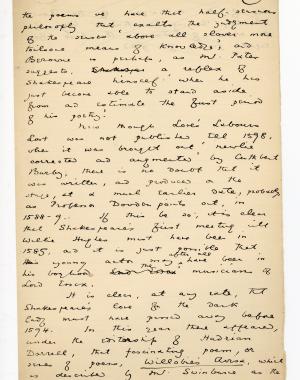 the poems we have that half-sensuous
philosophy that exalts the judgment
of the senses 'above all slower more
toilsome means of knowledge', and
Berowne is perhaps, as Mr. Pater
suggests, a reflex of
Shakespeare himself 'when he has
just become able to stand aside
from and estimate the first period
of his poetry.'
Now though Love's Labours
Lost was not published till 1598,
when it was brought out 'newlie
corrected and augmented' by Cuthbert
Burby, there is no doubt that it
was written, and produced on the
stage, at a much earlier date, probably
as Professor Dowden points out, in
1588-9. If this be so, it is clear
that Shakespeare's first meeting with
Willie Hughes must have been in
1585, and it is just possible that
this young actor may after all have been in
his boyhood the musician of
Lord Essex.
It is clear, at any rate, that
Shakespeare's love for the dark
lady must have passed away before
1594. In this year there appeared,
under the editorship of Hadrian
Dorrell, that fascinating poem, or
series of poems, Willobies Avisa, which
is described by Mr. Swinburne as the